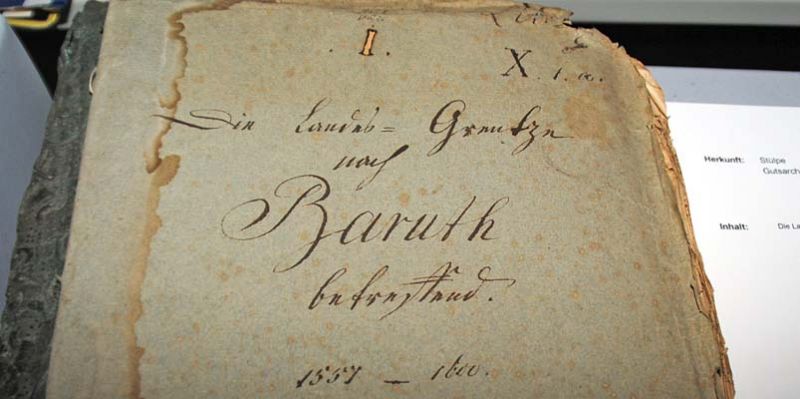 I.
X. 1. a.
Die Landes= Grentze
nach
Baruth
betreffend.
1557 — 1600.
Herkunft: Stülpe
Gutsarch
Inhalt: Die La